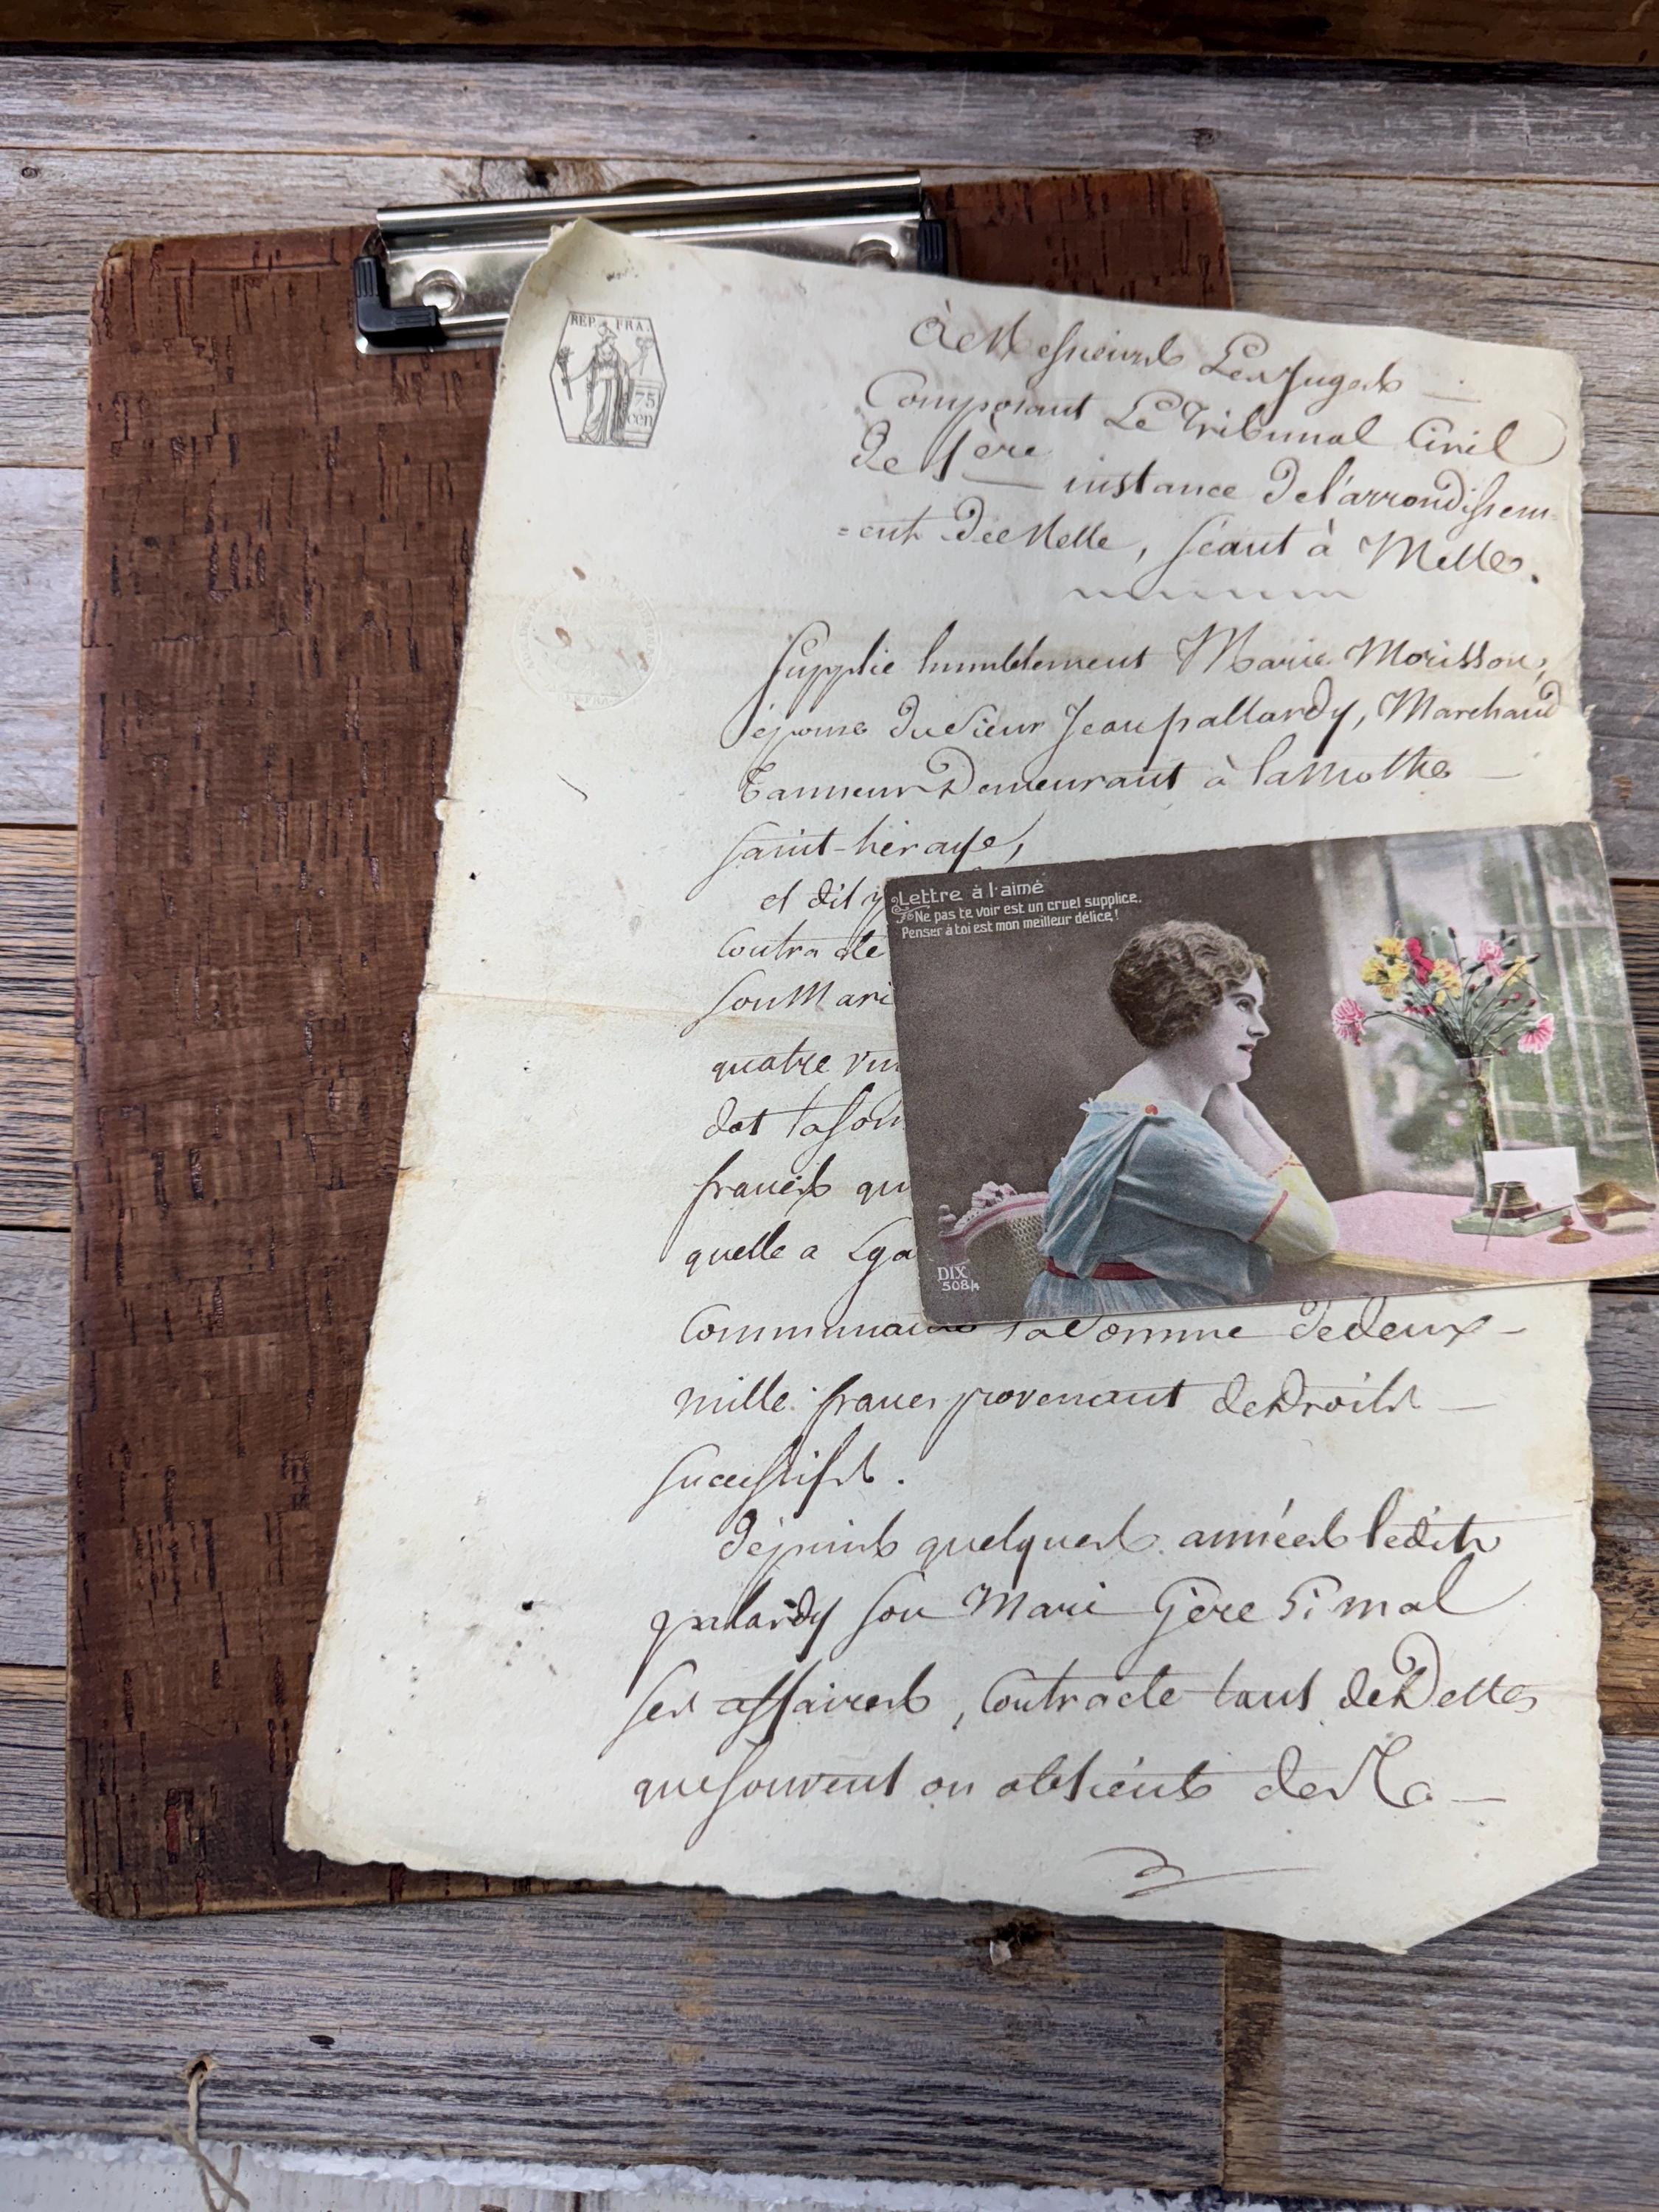 REP. FRA.
75
cen
À Messieurs Les Juges
Composant Le Tribunal Civil
De 1ère instance De l'arrondissem-
=ent De Melle, séant à Melle.
Supplie humblement Marie Morisson,
épouse Du Sieur Jean pallardy, Marchand
Tanneur Demeurant à la Mothe
saint-heraye,
et dit
contracte
son Mari
quatre vin
dot la som
francs qu
quelle a
Communauté la Somme de deux
mille francs provenant de Droits
successifs.
Dépuis quelques années ledit
palardy son Mari Gère si mal
ses affaires, Contracte tant de Dettes
que souvent on obtient de
Lettre à l'aimé
Ne pas te voir est un cruel supplice.
Penser à toi est mon meilleur délice!
DIX
508/4